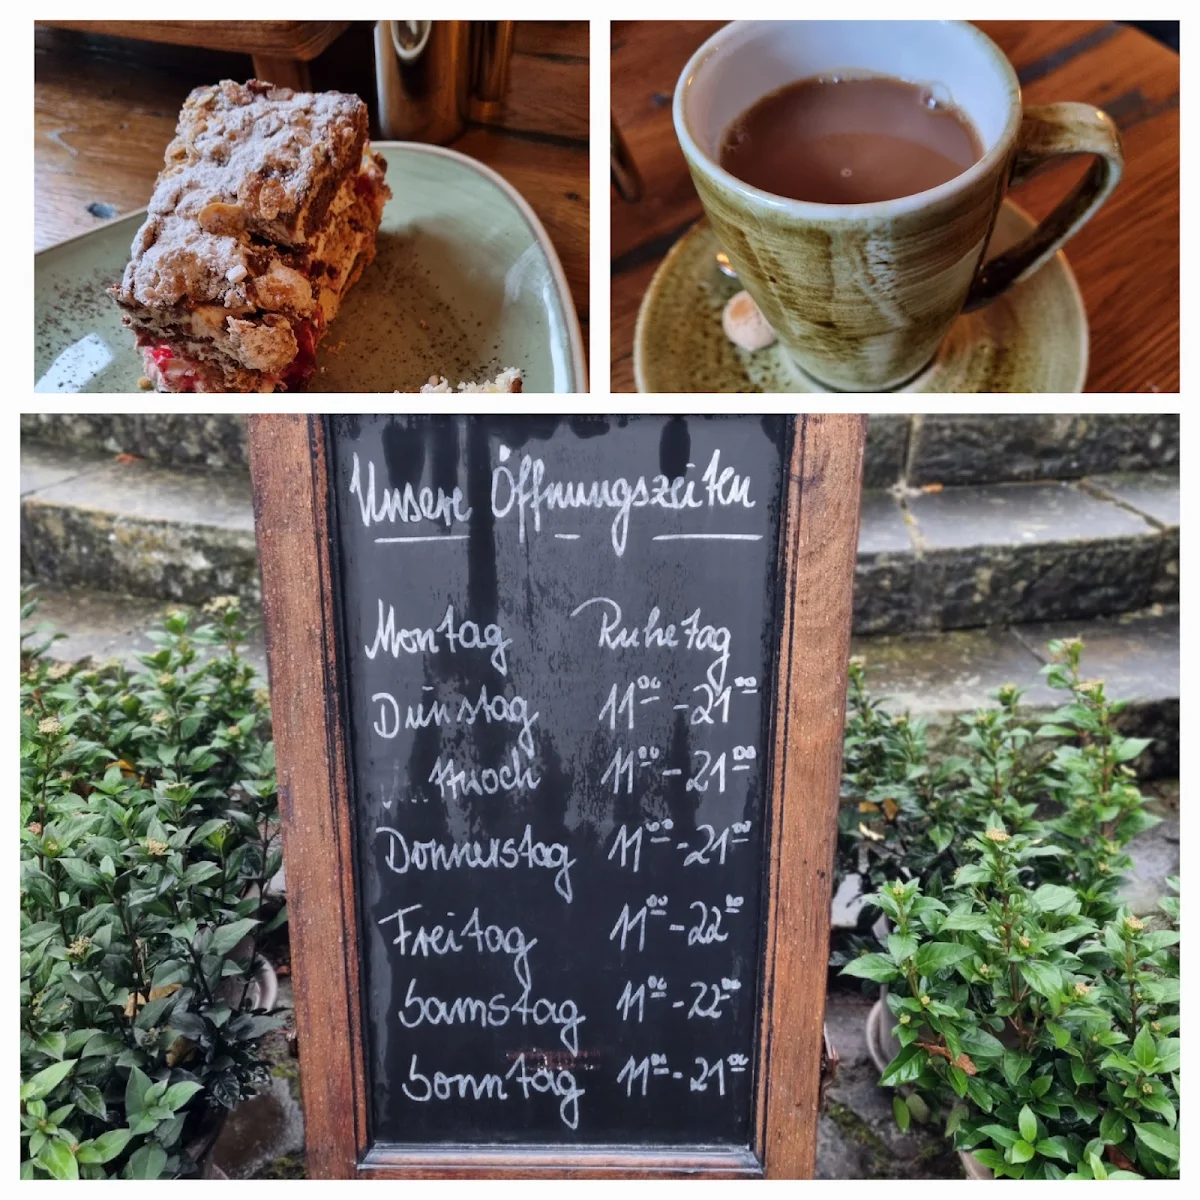 Unsere Öffnungszeiten
Montag Ruhetag
Dienstag 11⁰⁰ - 21⁰⁰
ttwoch 11⁰⁰ - 21⁰⁰
Donnerstag 11⁰⁰ - 21⁰⁰
Freitag 11⁰⁰ - 22⁰⁰
Samstag 11⁰⁰ - 22⁰⁰
Sonntag 11⁰⁰ - 21⁰⁰